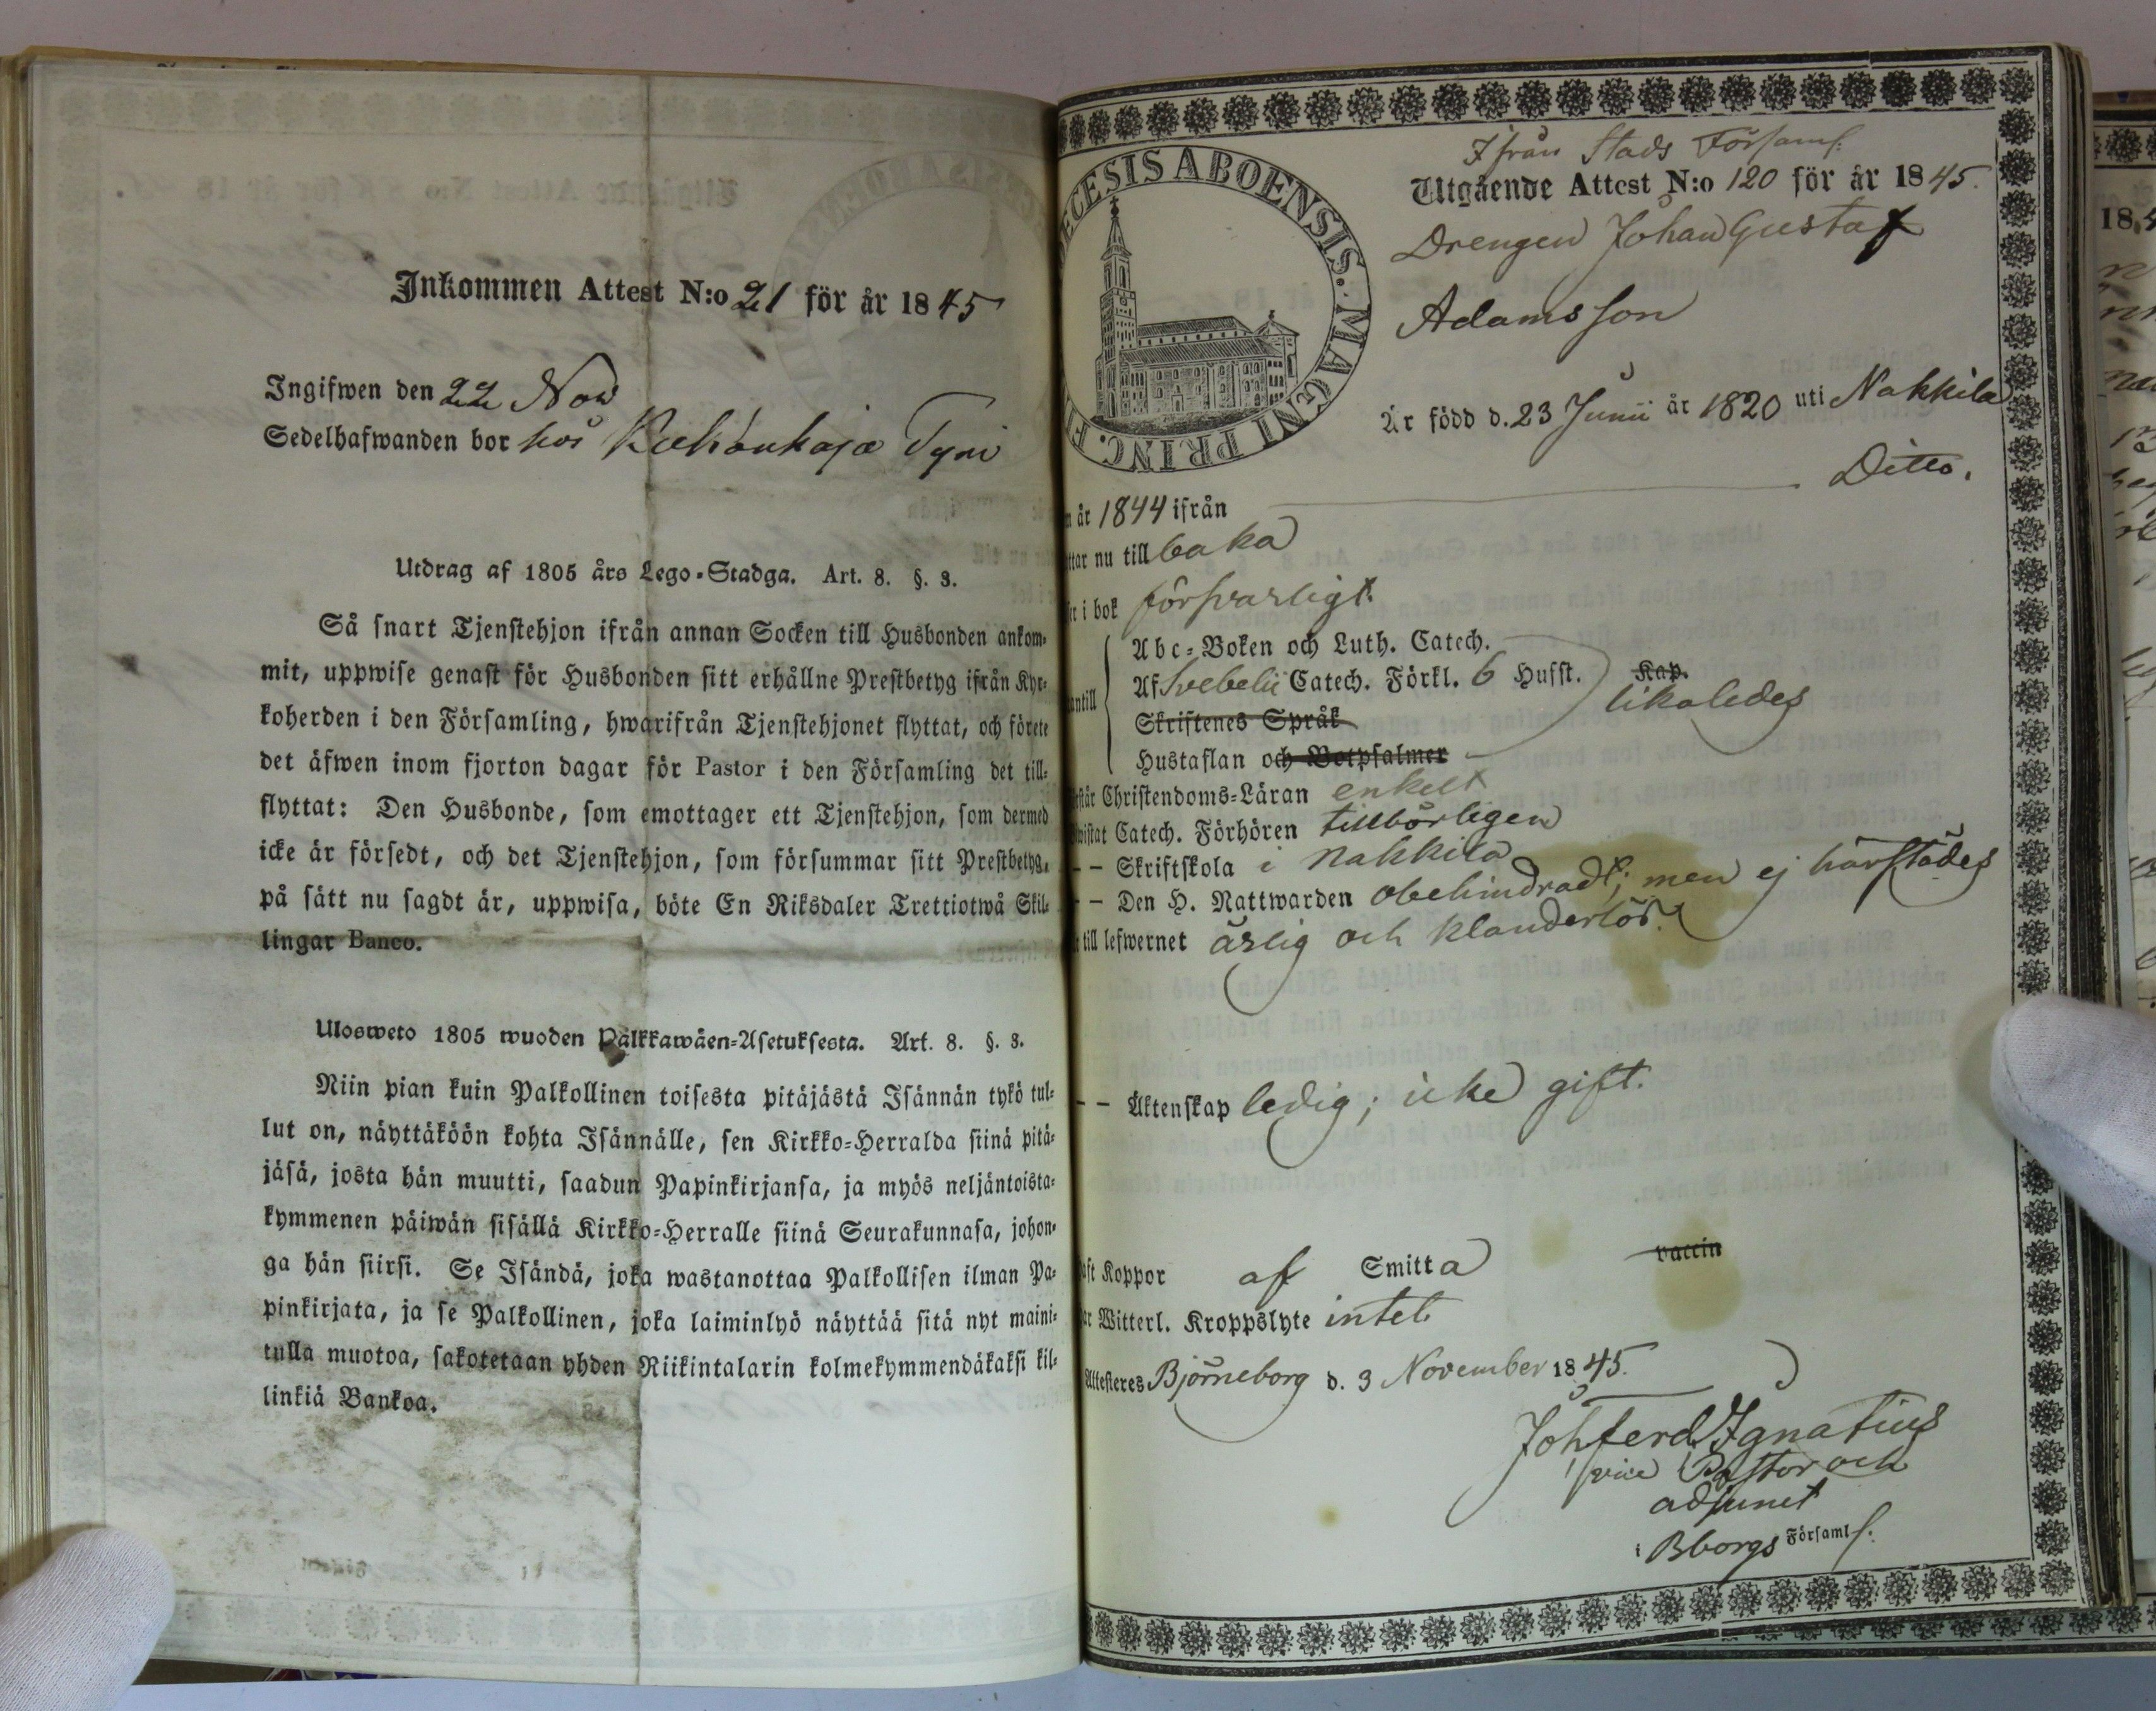 Inkommen Attest N:o 21 för år 1845
Ingifwen den 22 Nov
Sedelhafwanden bor hos Tyni
Utdrag af 1805 års Lego-Stadga. Art. 8. §. 3.
Så snart Tjenstehjon ifrån annan Socken till Husbonden ankom-
mit, uppwise genast för Husbonden sitt erhållne Prestbetyg ifrån Kyr-
koherden i den Församling, hwarifrån Tjenstehjonet flyttat, och förete
det äfwen inom fjorton dagar för Pastor i den Församling det till-
flyttat: Den Husbonde, som emottager ett Tjenstehjon, som dermed
icke är försedt, och det Tjenstehjon, som försummar sitt Prestbetyg,
på sätt nu sagdt är, uppwisa, böte En Riksdaler Trettiotwå Skil-
lingar Banco.
Ulosweto 1805 wuoden Palkkawäen-Asetuksesta. Art. 8. §. 3.
Niin pian kuin Palkollinen toisesta pitäjästä Isännän tykö tul-
lut on, näyttäköön kohta Isännälle, sen Kirkko-Herralda siinä pitä-
jäsä, josta hän muutti, saadun Papinkirjansa, ja myös neljäntoista-
kymmenen päiwän sisällä Kirkko-Herralle siinä Seurakunnasa, johon-
ga hän siirsi. Se Isändä, joka wastanottaa Palkollisen ilman Pa-
pinkirjata, ja se Palkollinen, joka laiminlyö näyttää sitä nyt maini-
tulla muotoa, sakotetaan yhden Riikintalarin kolmekymmendäkaksi kil-
linkiä Bankoa.
ECESIS ABOENSIS. MAGNI PRINC. F
Ifrån Stads Församl.
Utgående Attest N:o 120 för år 1845.
Drengen Johan Gustaf
Adamsson
Är född d. 23 Junii år 1820 uti Nakkila
n år 1844 ifrån Ditto.
ttar nu till baka
er i bok försvarligt.
antill
Abc-Boken och Luth. Catech.
Af Svebelii Catech. Förkl. 6 Hufst. Kap.
likaledes
Skriftenes Språk
Hustaflan och Botpsalmer
står Christendoms-Läran enkelt
wistat Catech. Förhören tillbörligen
- - Skriftskola i Nakkila
- - Den H. Nattwarden obehindradt; men ej härstädes
till lefwernet ärlig och klanderlös.
- - Äktenskap ledig; icke gift.
aft Koppor af Smitta vaccin
ar Witterl. Kroppslyte intet
Attesteres Björneborg d. 3 November 1845.
Joh Ferd Ignatius
vice Pastor och
adjunct
i Bborgs Församl.